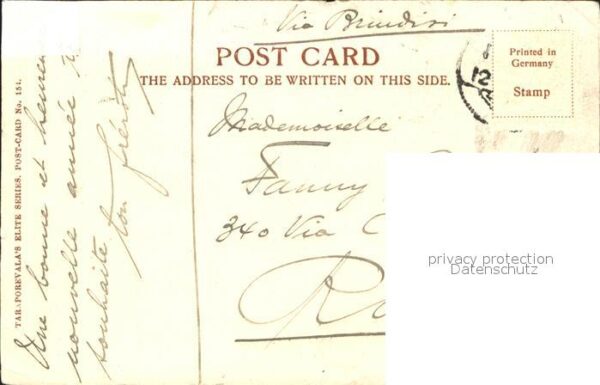 Via Brindisi
POST CARD
THE ADDRESS TO BE WRITTEN ON THIS SIDE.
Printed in
Germany
Stamp
12
Mademoiselle
Fanny
340 Via C
R
privacy protection
Datenschutz
TARAPOREVALA'S ELITE SERIES. POST-CARD No. 151.
Une bonne et heureuse
nouvelle année te
souhaite ton